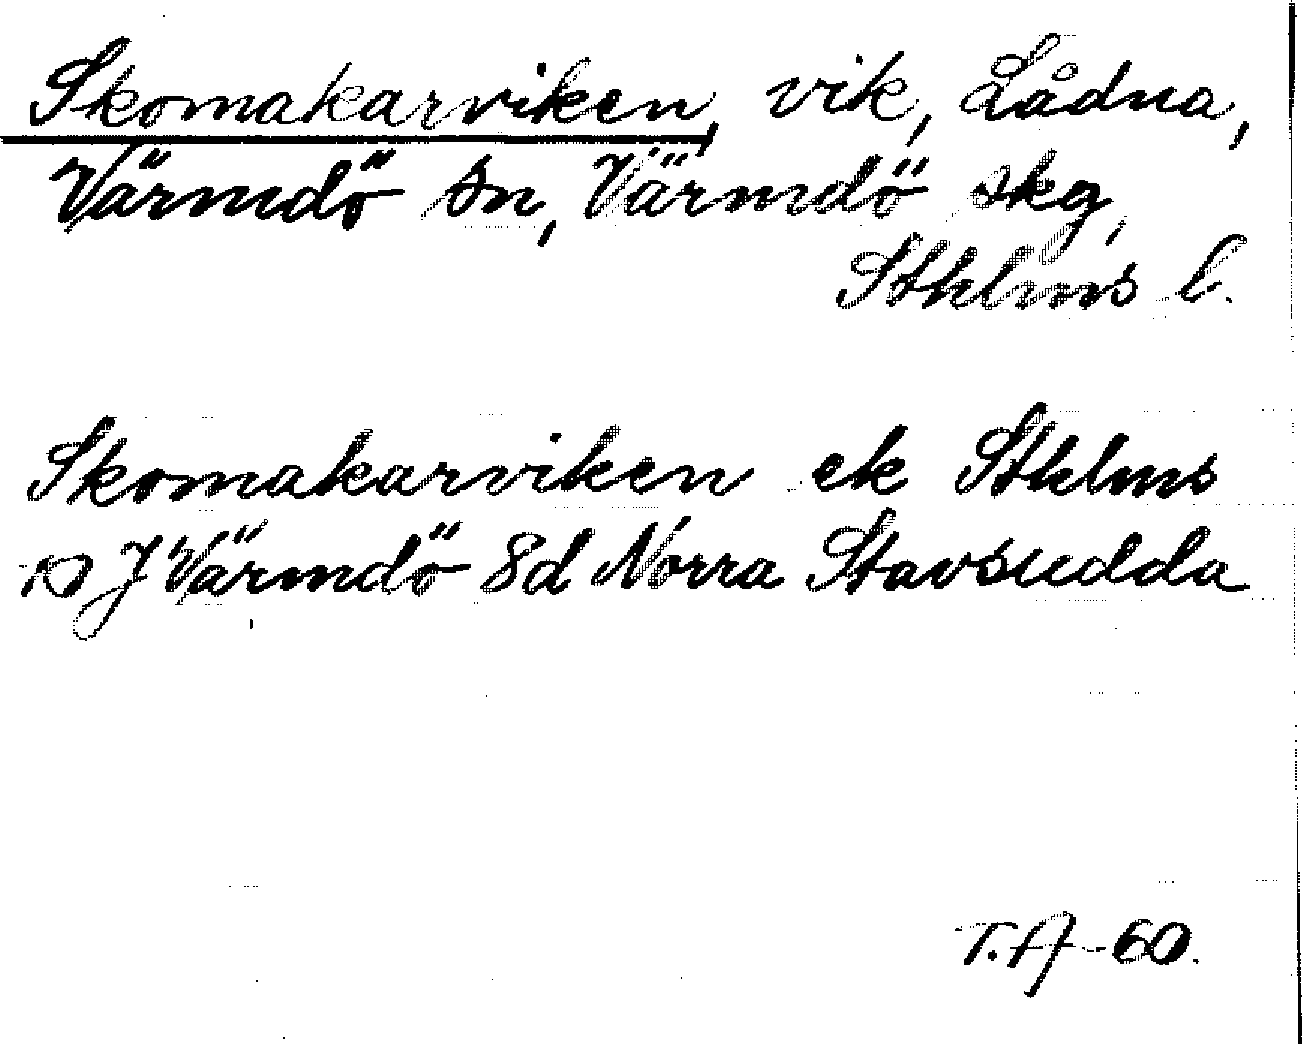 Skomakarviken, vik, Lådna,
Värmdö sn, Värmdö skg,
Sthlms l.
Skomakarviken ek Sthlms
J Värmdö 8d Norra Stavsudda
T.A-60.